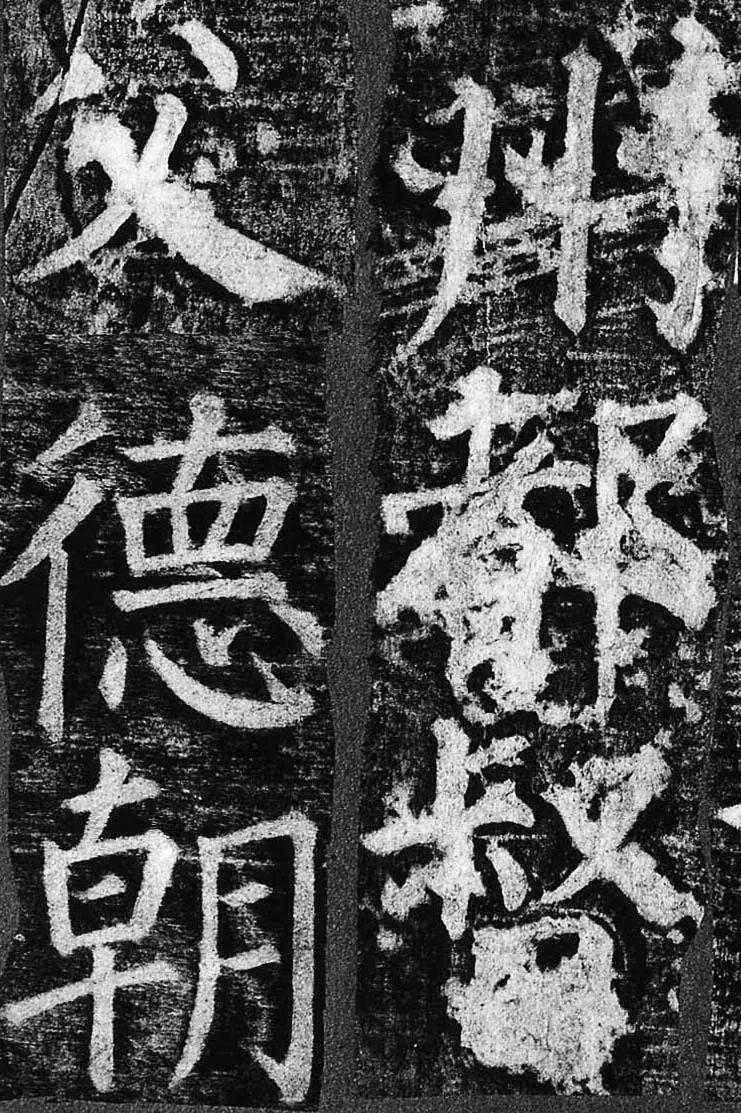 州都督
父德朝